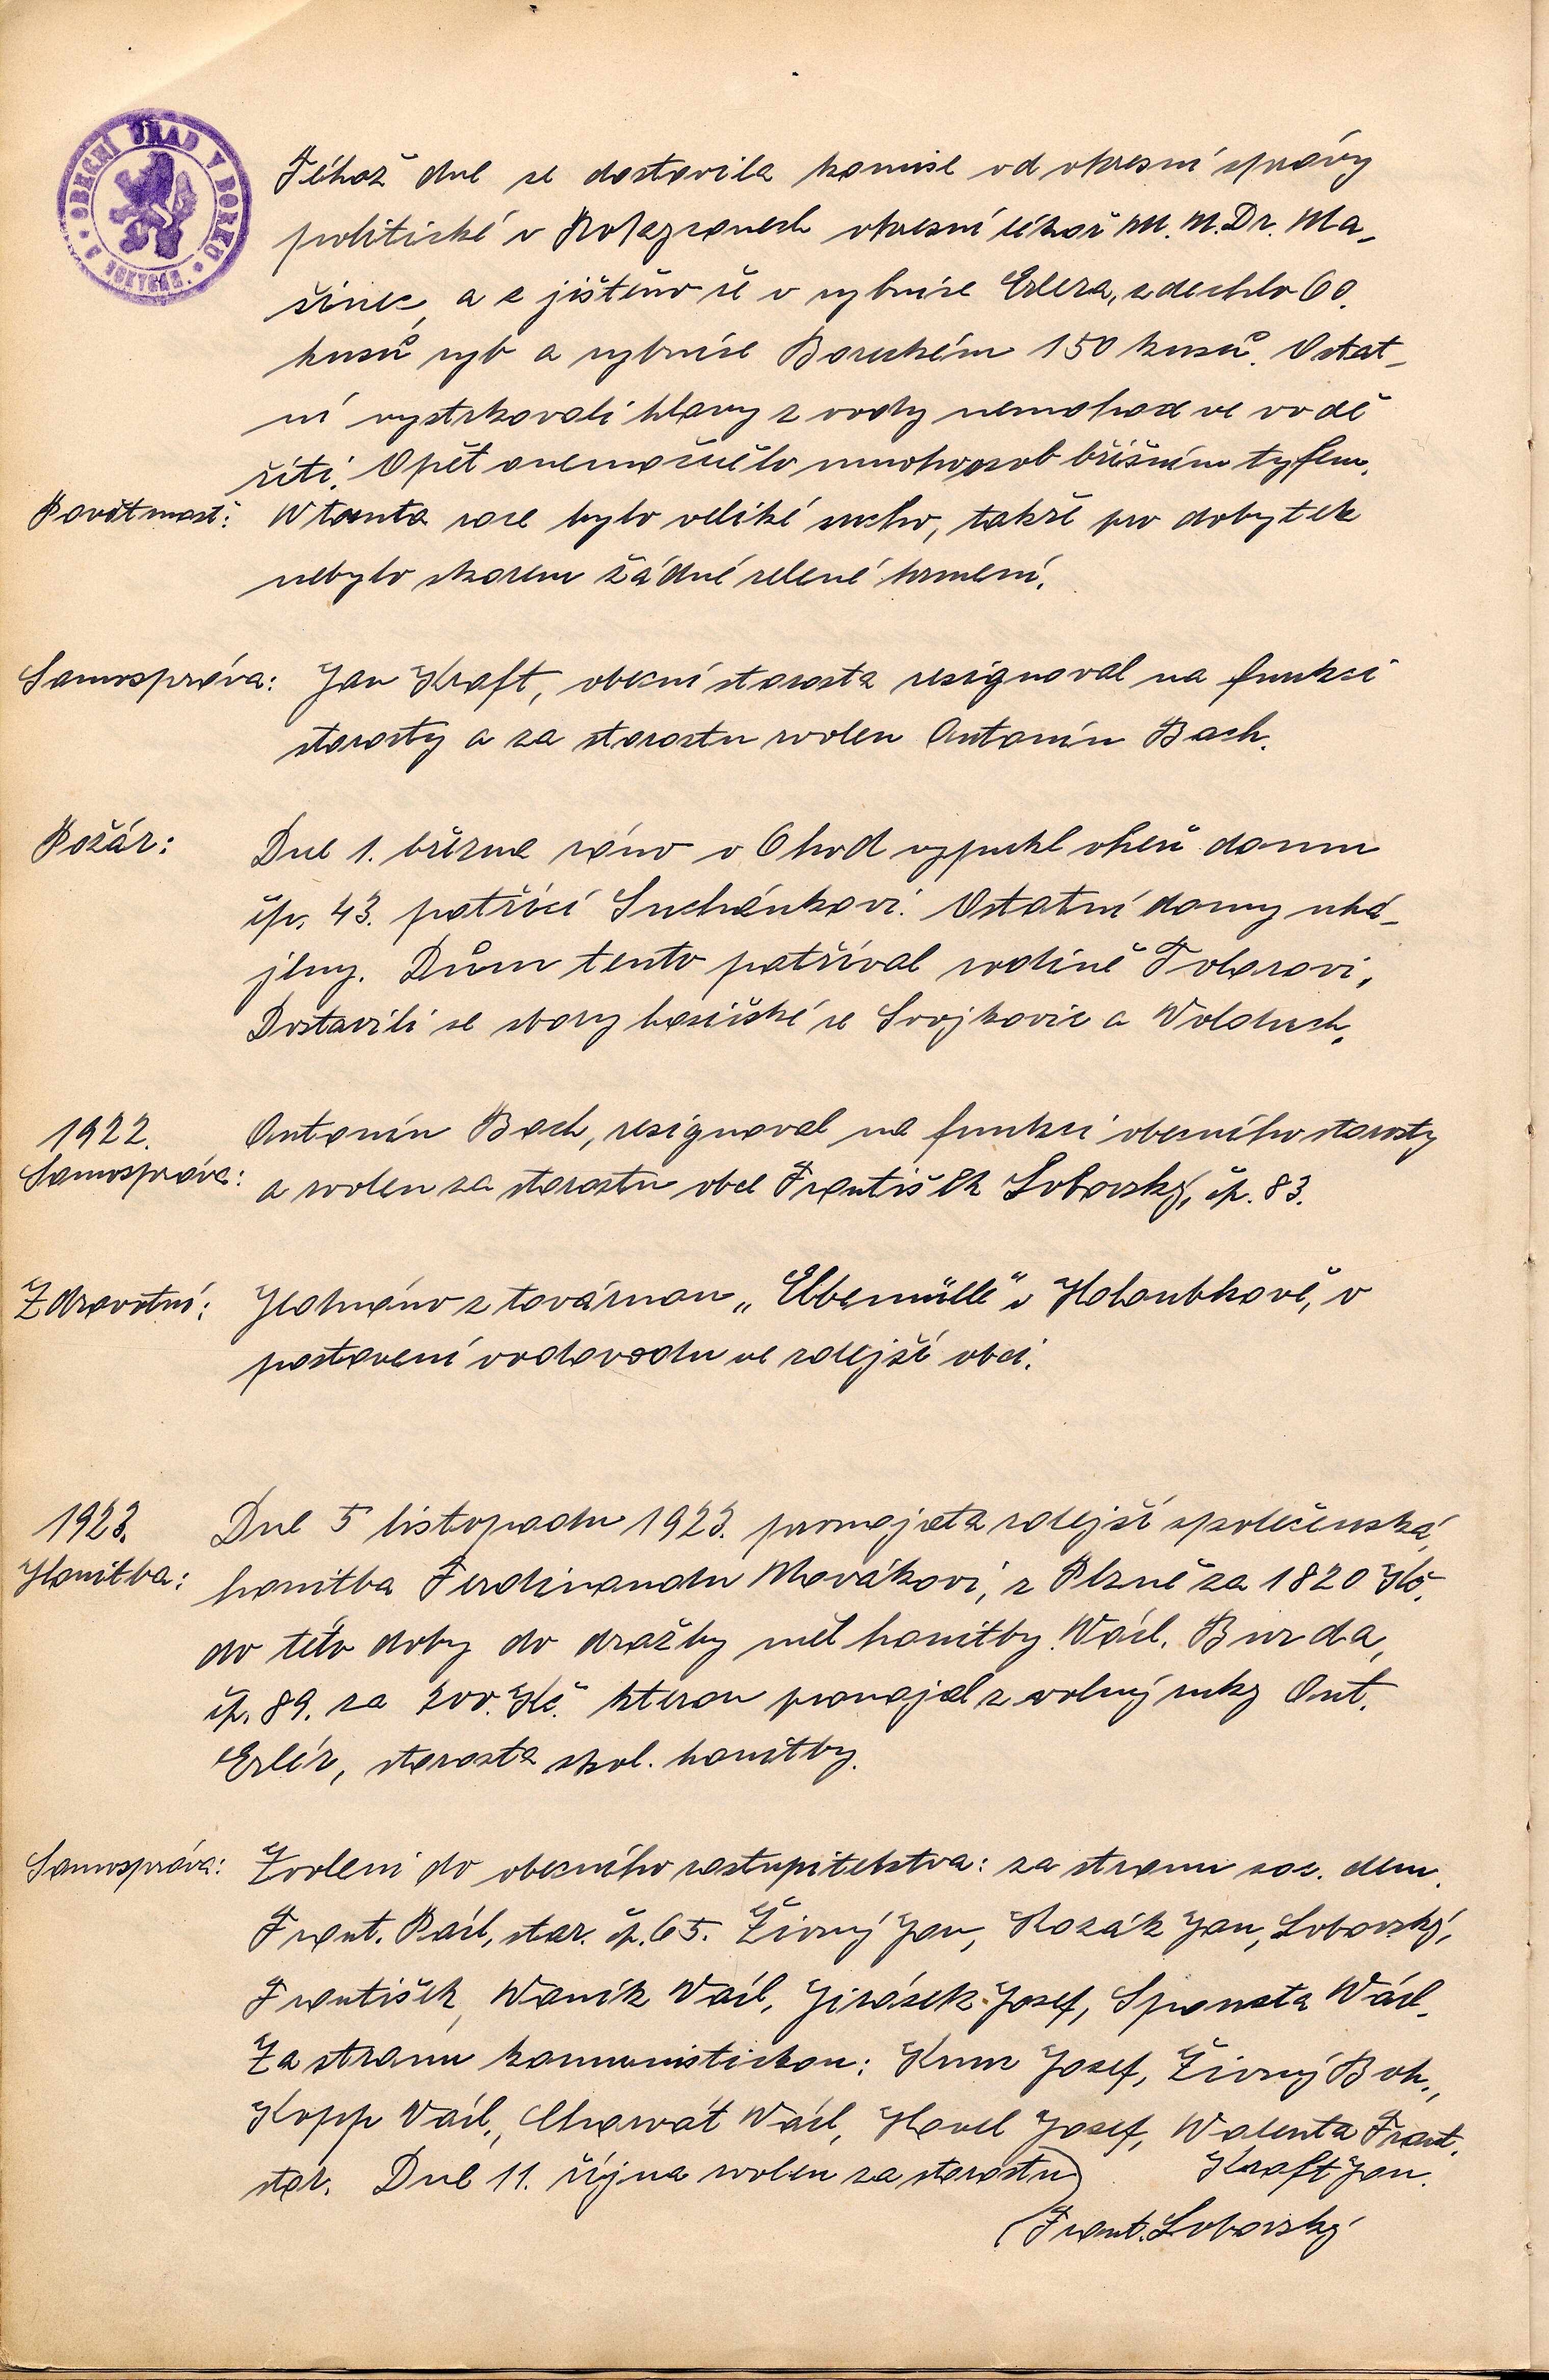 OBECNÍ ÚŘAD V BORKU
Téhož dne se dostavila komise od okresní správy
politické v Rokyzanech okresní lékař M. M. Dr. Ma-
šinec, a zjištěno že v rybníce Erlera, zdechlo 60.
kusů ryb a rybníce Boreckém 150 kusů. Ostat-
ní vystrkovali hlavy z vody nemohoce ve vodě
žíti. Opět onemocnělo mnoho osob břišním tyfem.
Povětrnost: W tomto roce bylo veliké sucho, takže pro dobytek
nebylo skorem žádné zelené krmení.
Samospráva: Jan Kraft, obecní starosta resignoval na funkci
starosty a za starostu zvolen Antonín Bach.
Požár: Dne 1. března ráno v 6 hod vypukl oheň domu
čp. 43. patřící Suchánkovi. Ostatní domy uhá-
jeny. Dům tento patříval rodině Tolarovi.
Dostavili se sbory hasičské ze Svojkovic a Woloduch.
1922. Antonín Bach, resignoval na funkci obecního starosty
Samospráva: a zvolen za starostu obce František Lobovský, čp. 83.
Zdravotní: Jednáno z továrnou „Elbemülle" v Holoubkově, v
postavení vodovodu ve zdejší obci.
1923. Dne 5 listopadu 1923. pronajata zdejší společenská
Honitba: honitba Ferdinandu Novákovi, z Plzně za 1820 Kč.
do této doby do dražby měl honitby Wácl. Burda,
čp. 89. za 200. Kč. kterou pronajal z volný ruky Ont.
Erlér, starosta spol. honitby.
Samospráva: Zvoleni do obecního zastupitelstva: za stranu soc. dem.
Frant. Pácl, star. čp. 65. Živný Jan, Kozák Jan, Lobovský,
František, Waník Václ, Jirásek Josef, Spousta Wácl.
Za stranu komunistickou: Krum Josef, Živný Boh.,
Kopp Václ., Charvát Wácl, Havel Josef, Walenta Frant.
star. Dne 11. října zvolen za starostu Kraft Jan.
Frant. Lobovský